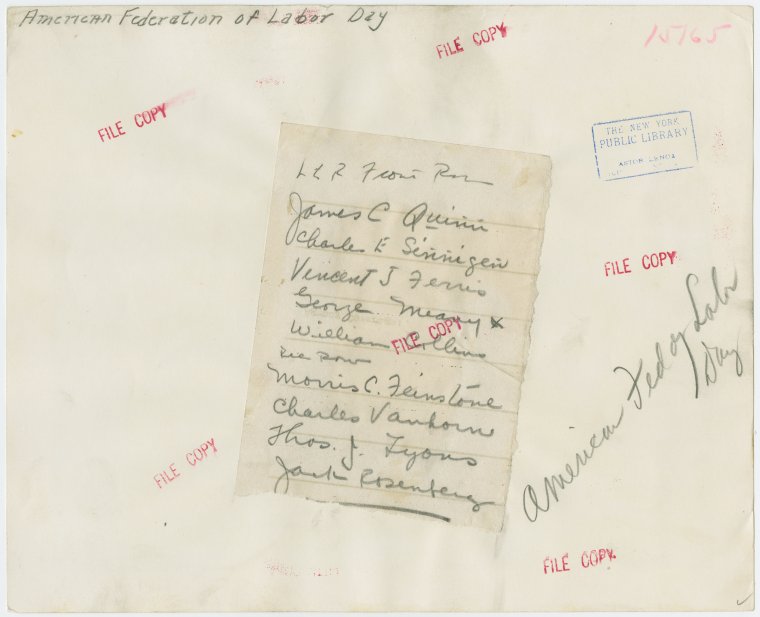 American Federation of Labor Day
FILE COPY
15765
FILE COPY
THE NEW YORK
PUBLIC LIBRARY
ASTOR LENOX
L & R Front Row
James C Quinn
Charles E Sinnigen
Vincent J Ferris
George Meany x
William Collins
FILE COPY
Row
Morris C. Feinstone
Charles Vanhorne
Thos. J. Lyons
Jack Rosenberg
FILE COPY
American Fed of Labor
Day
FILE COPY
FILE COPY